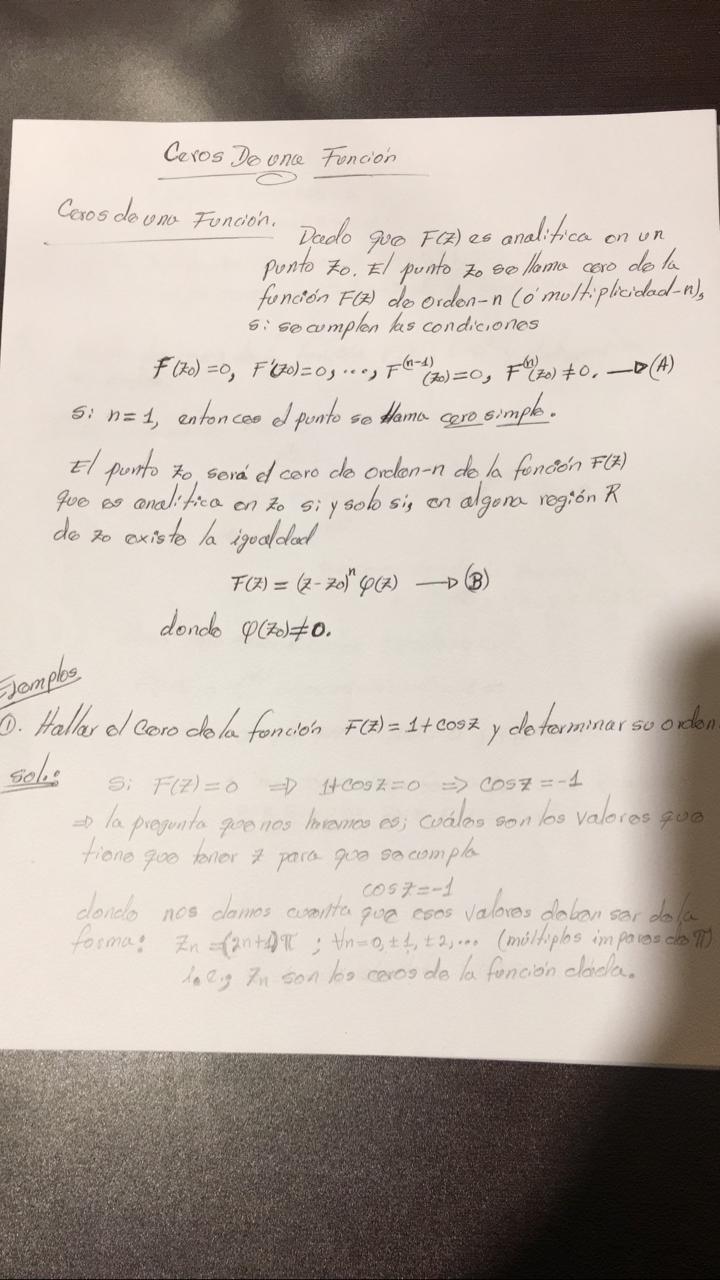 Ceros De una Función
Ceros de una Función.
Dado que F(z) es analítica en un
punto z₀. El punto z₀ se llama cero de la
función F(z) de orden-n (ó multiplicidad-n),
si se cumplen las condiciones
F(z₀)=0, F'(z₀)=0, ..., F⁽ⁿ⁻¹⁾(z₀)=0, F⁽ⁿ⁾(z₀)≠0. →(A)
Si n=1, entonces el punto se llama cero simple.
El punto z₀ será el cero de orden-n de la función F(z)
que es analítica en z₀ si y solo si, en alguna región R
de z₀ existe la igualdad
F(z) = (z-z₀)ⁿ φ(z) →(B)
donde φ(z₀)≠0.
Ejemplos
①. Hallar el Cero de la función F(z)=1+cosz y determinar su orden
sol.:
Si F(z)=0 ⇒ 1+cosz=0 ⇒ cosz=-1
⇒ la pregunta que nos haremos es; cuáles son los valores que
tiene que tener z para que se cumpla
cosz=-1
donde nos damos cuenta que esos valores deben ser de la
forma: zₙ=(2n+1)π ; ∀n=0,±1,±2,... (múltiplos impares de π)
i.e.; zₙ son los ceros de la función dada.